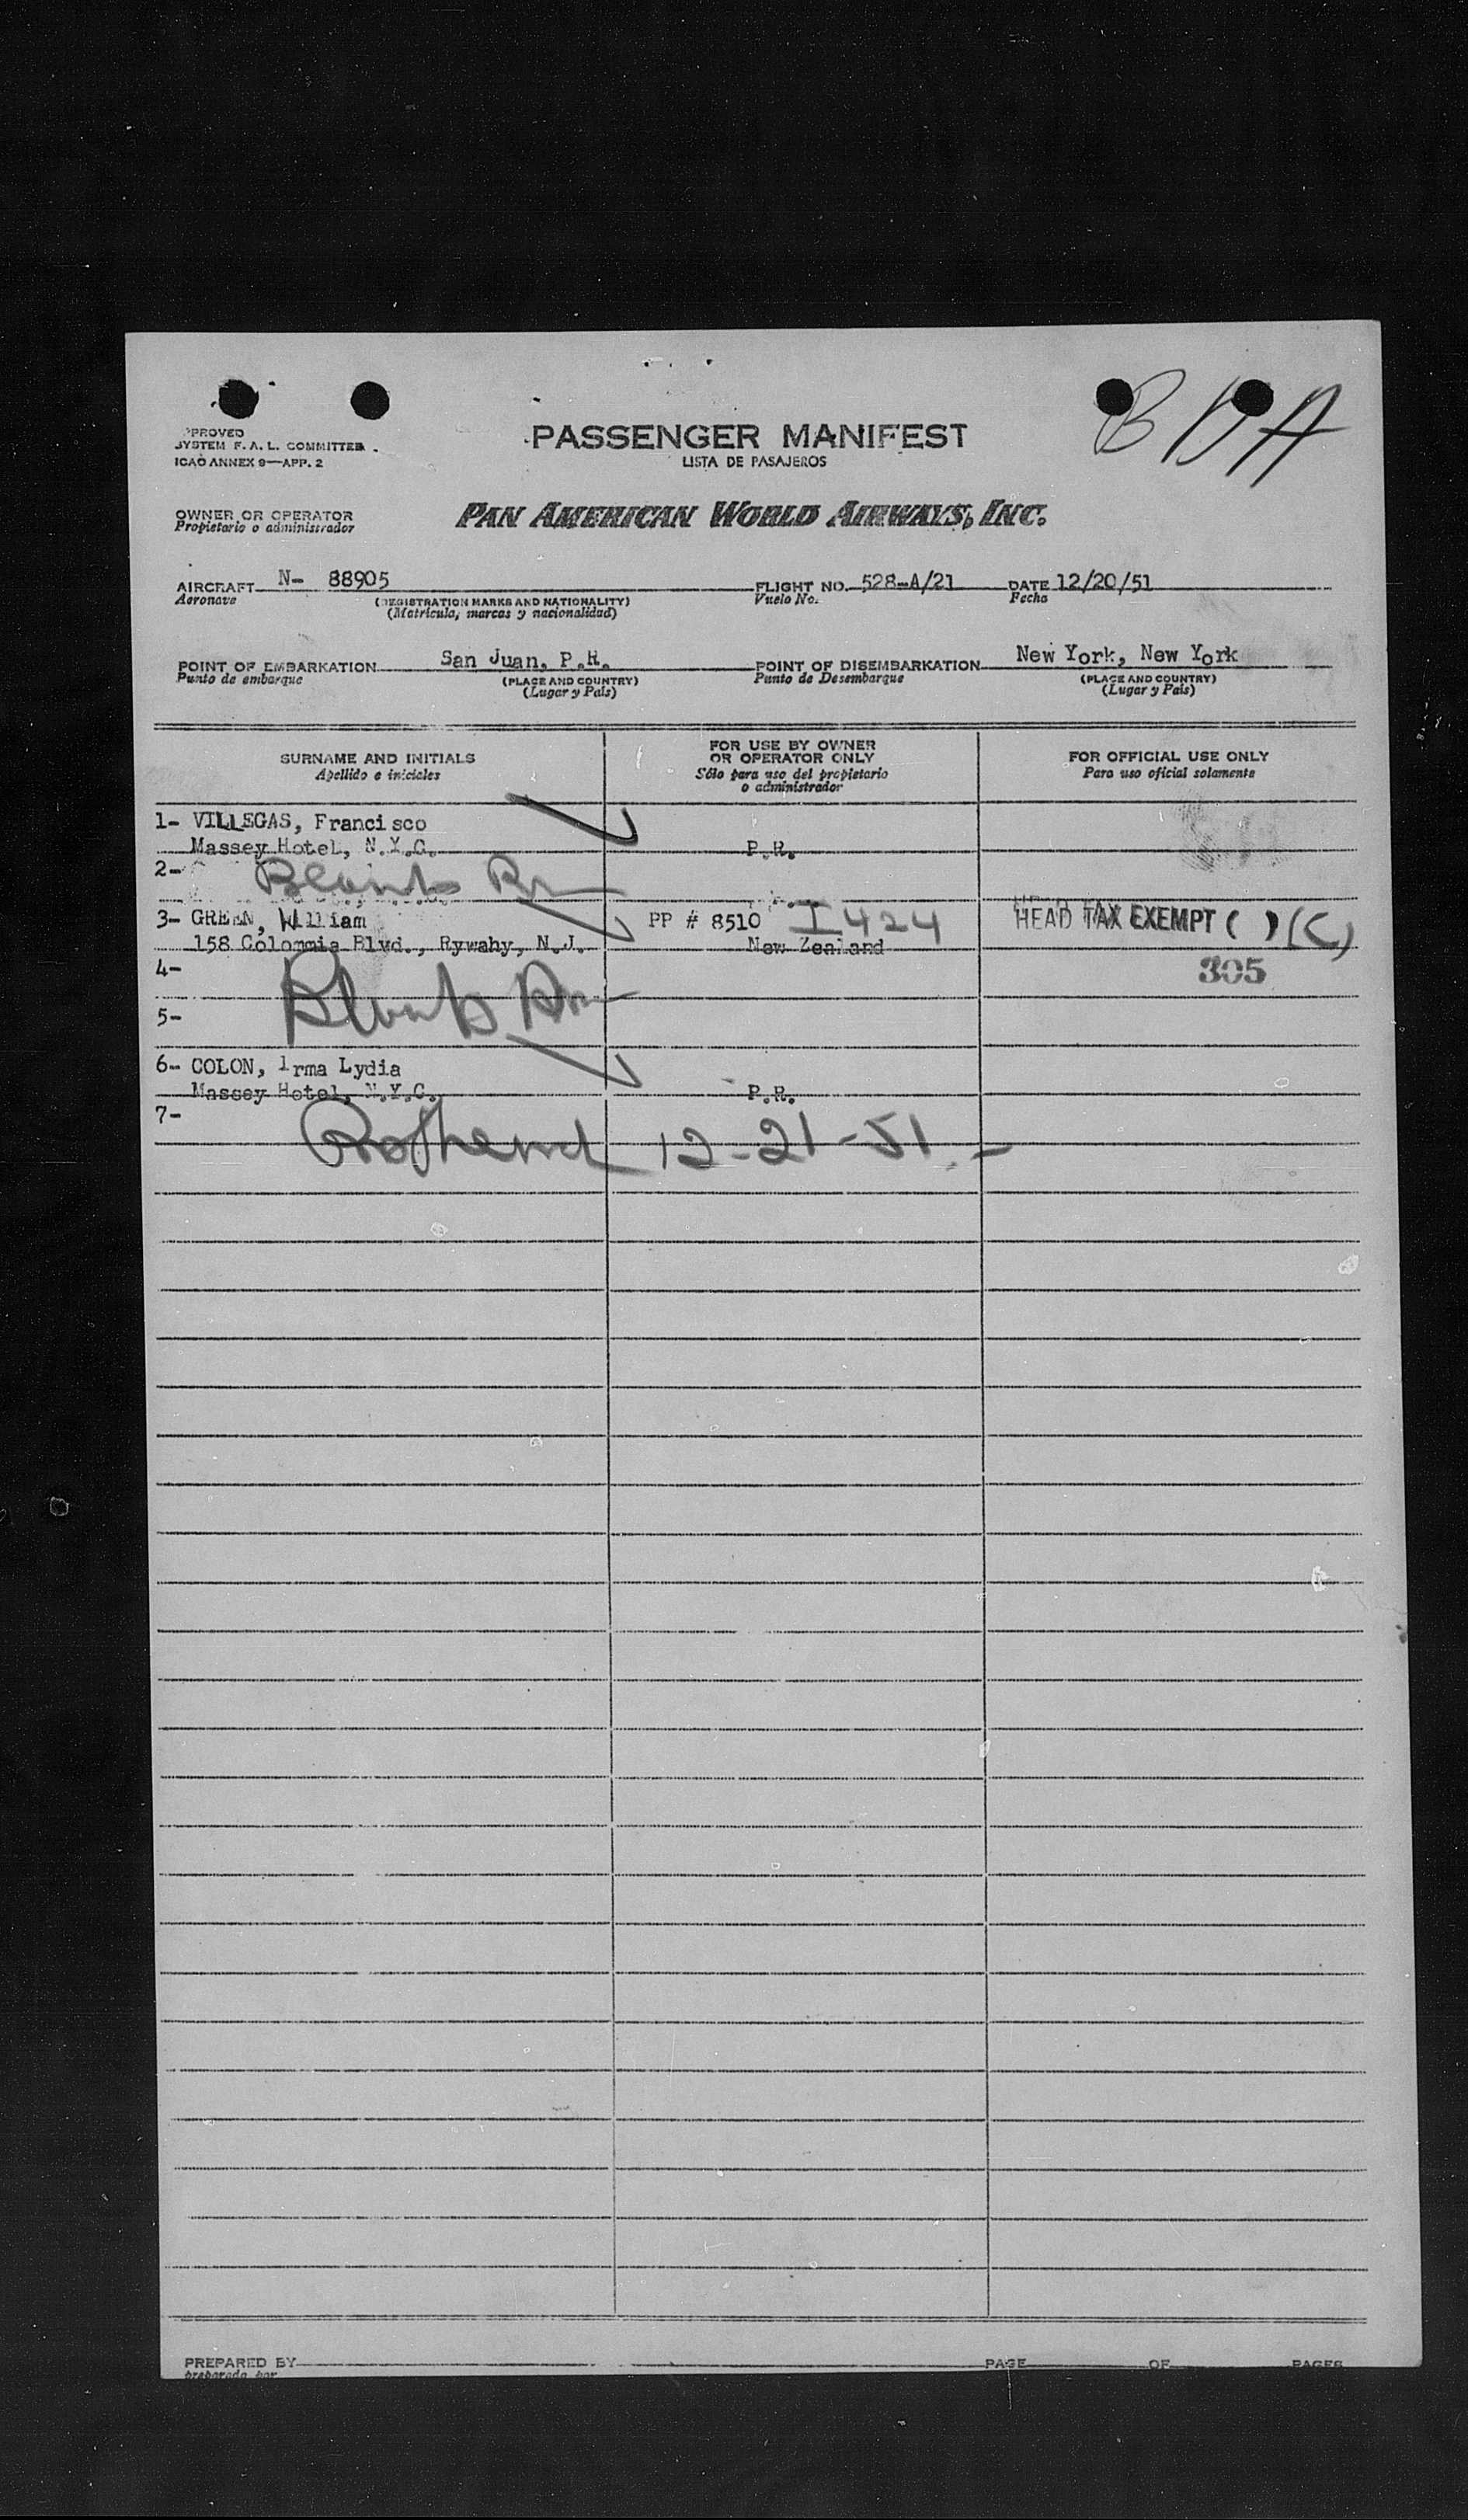 BDA
PROVED
SYSTEM F. A. L. COMMITTEE
ICAO ANNEX 9—APP. 2
PASSENGER MANIFEST
LISTA DE PASAJEROS
OWNER OR OPERATOR
Propietario o administrador
PAN AMERICAN WORLD AIRWAYS, INC.
AIRCRAFT N- 88905 FLIGHT NO. 528-A/21 DATE 12/20/51
Aeronave (REGISTRATION MARKS AND NATIONALITY) Vuelo No. Fecha
(Matrícula, marcas y nacionalidad)
POINT OF EMBARKATION San Juan, P.R. POINT OF DISEMBARKATION New York, New York
Punto de embarque (PLACE AND COUNTRY) Punto de Desembarque (PLACE AND COUNTRY)
(Lugar y País) (Lugar y País)
SURNAME AND INITIALS
Apellido e iniciales
FOR USE BY OWNER
OR OPERATOR ONLY
Sólo para uso del propietario
o administrador
FOR OFFICIAL USE ONLY
Para uso oficial solamente
1- VILLEGAS, Francisco
Massey Hotel, N.Y.C. P.R.
2- Blank
3- GREEN, William PP # 8510 I 424 HEAD TAX EXEMPT ( ) (C)
158 Colommia Blvd., Rywahy, N.J. New Zealand
4- 305
Blank
5-
6- COLON, Irma Lydia
Massey Hotel, N.Y.C. P.R.
7-
12-21-51
PREPARED BY PAGE OF PAGES
preparado por